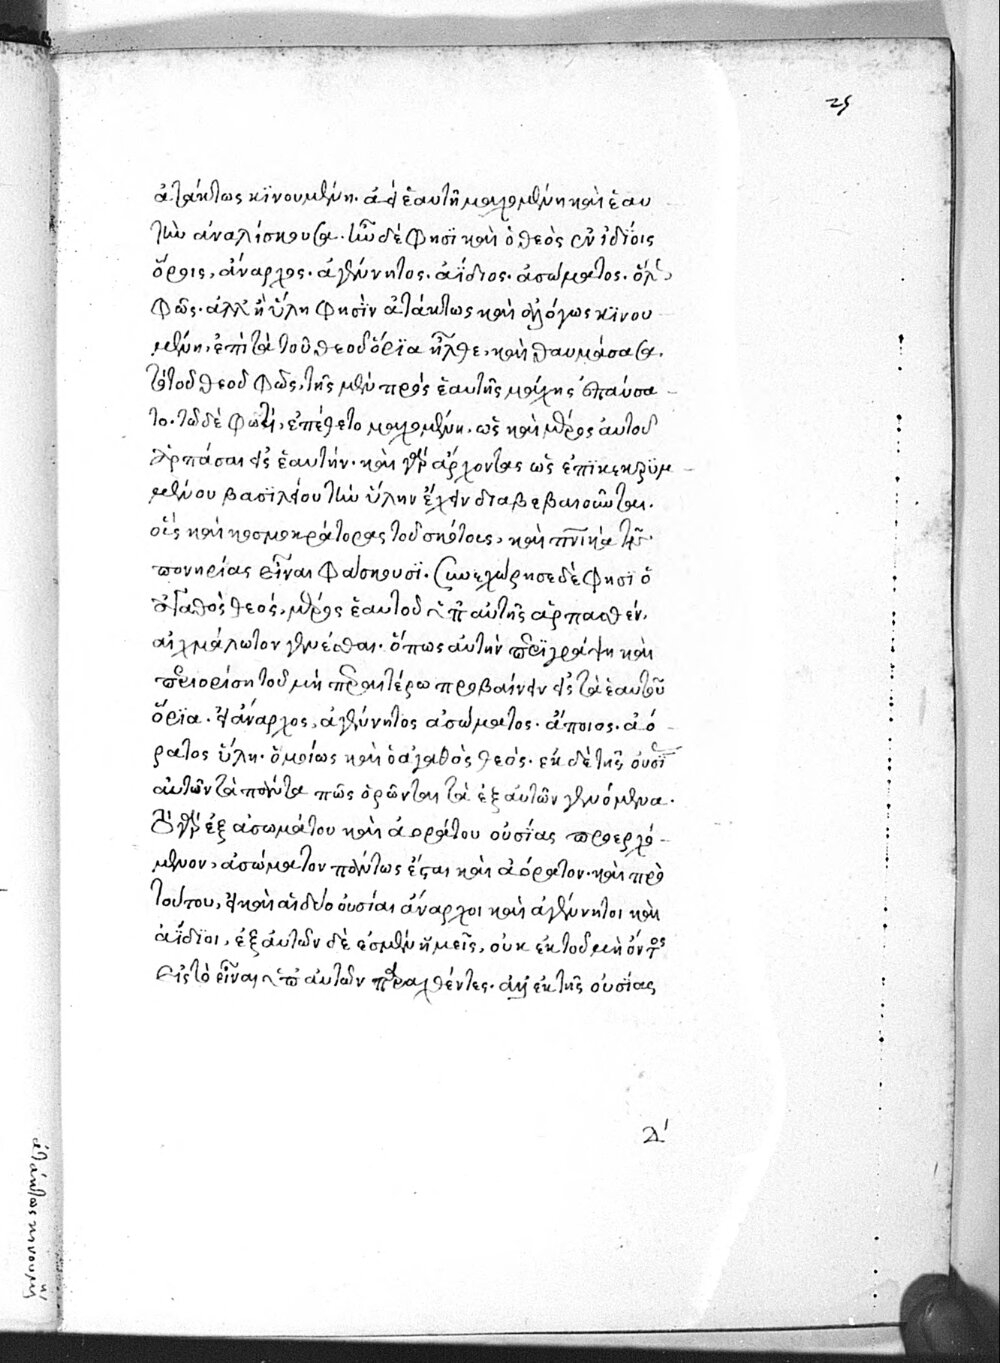 25
ἀτάκτως κϊνουμένη. ἀεὶ ἑαυτῆ μαχομένη καὶ ἑαυ
τὴν ἀναλίσκουσα. ἦν δέ φησϊ καὶ ὁ θεὸς ἐν ἰδίοις
ὅροις, ἄναρχος. ἀγέννητος. ἀΐδιος. ἀσώματος. ὅλος
φῶς. ἀλλ' ἡ ὕλη φησὶν ἀτάκτως καὶ ἀλόγως κϊνου
μένη, ἐπὶ τὰ τοῦ θεοῦ ὅρϊα ἦλθε, καὶ θαυμάσασα
τὸ τοῦ θεοῦ φῶς, τῆς μὲν πρὸς ἑαυτῆς μάχης ἐπαύσα
το. τῶ δὲ φωτὶ, ἐπέθετο μαχομένη. ὡς καὶ μέρος αὐτοῦ
ἁρπάσαι εἰς ἑαυτήν. καὶ γὰρ ἄρχοντας ὡς ἐπϊκεκρυμ
μένου βασϊλείου τὴν ὕλην ἔχειν διαβεβαιοῦνται.
οὓς καὶ κοσμοκράτορας τοῦ σκότους, καὶ πνικὰ τῆς
πονηρίας εἶναι φάσκουσϊ. συνεχώρησε δὲ φησϊ ὁ
ἀγαθὸς θεός, μέρος ἑαυτοῦ ὑπ' αὐτῆς ἁρπασθέν,
αἰχμάλωτον γενέσθαι. ὅπως αὐτὴν περϊγράψη καὶ
περιορίση τοῦ μὴ περαιτέρω προβαίνειν εἰς τὰ ἑαυτοῦ
ὅρϊα. εἰ ἄναρχος, ἀγέννητος ἀσώματος. ἄποιος. ἀό
ρατος ὕλη. ὁμοίως καὶ ὁ ἀγαθὸς θεός. ἐκ δὲ τῆς οὐσί
αὐτῶν τὰ πάντα πῶς ὁρῶνται τὰ ἐξ αὐτῶν γενόμενα.
τὸ γὰρ ἐξ ἀσωμάτου καὶ ἀοράτου οὐσίας προερχό
μενον, ἀσώματον πάντως ἔσται καὶ ἀόρατον. καὶ πρὸ
τούτου, εἰ καὶ αἱ δύο οὐσίαι ἄναρχοι καὶ ἀγέννητοι καὶ
ἀΐδϊοι, ἐξ αὐτῶν δὲ ἐσμὲν ἡμεῖς, οὐκ ἐκ τοῦ μὴ ὄντος
εἰς τὸ εἶναι ὑπ' αὐτῶν παραχθέντες. ἀλλ' ἐκ τῆς οὐσίας
δ'
ἀτάκτως κινουμένη